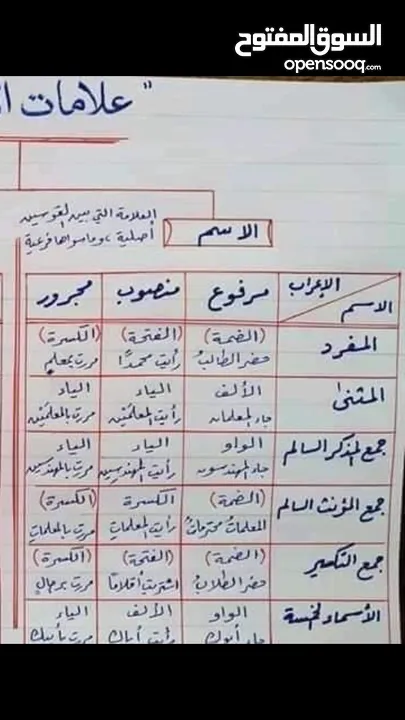 السوق المفتوح
opensooq.com
"علامات ا
العلامة التي بين القوسين
أصلية، وماسواها فرعية
الاسم
الإعراب
الاسم
مرفوع
منصوب
مجرور
المفرد
(الضمة)
حضر الطالبُ
(الفتحة)
رأيت محمدًا
(الكسرة)
مررت بمعلمٍ
المثنى
الألف
جاء المعلمان
الياء
رأيت المعلمَين
الياء
مررت بالمعلمَين
جمع المذكر السالم
الواو
جاء المهندسون
الياء
رأيت المهندسين
الياء
مررت بالمهندسين
جمع المؤنث السالم
(الضمة)
المعلماتُ محترماتٌ
الكسرة
رأيت المعلماتِ
(الكسرة)
مررت بالمعلماتِ
جمع التكسير
(الضمة)
حضر الطلابُ
(الفتحة)
اشتريت أقلامًا
(الكسرة)
مررت برجالٍ
الأسماء الخمسة
الواو
جاء أبوك
الألف
رأيت أباك
الياء
مررت بأبيك